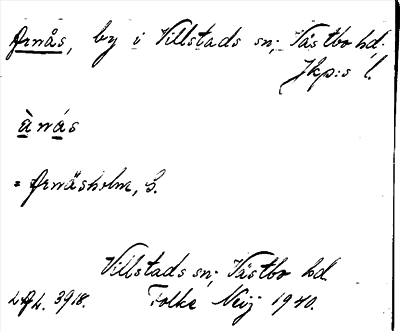 Årnås, by i Villstads sn; Västbo hd.
Jkp:s l.
à nás
= Årnäsholm, S.
Villstads sn; Västbo hd.
3918. Folke Neij 1940.